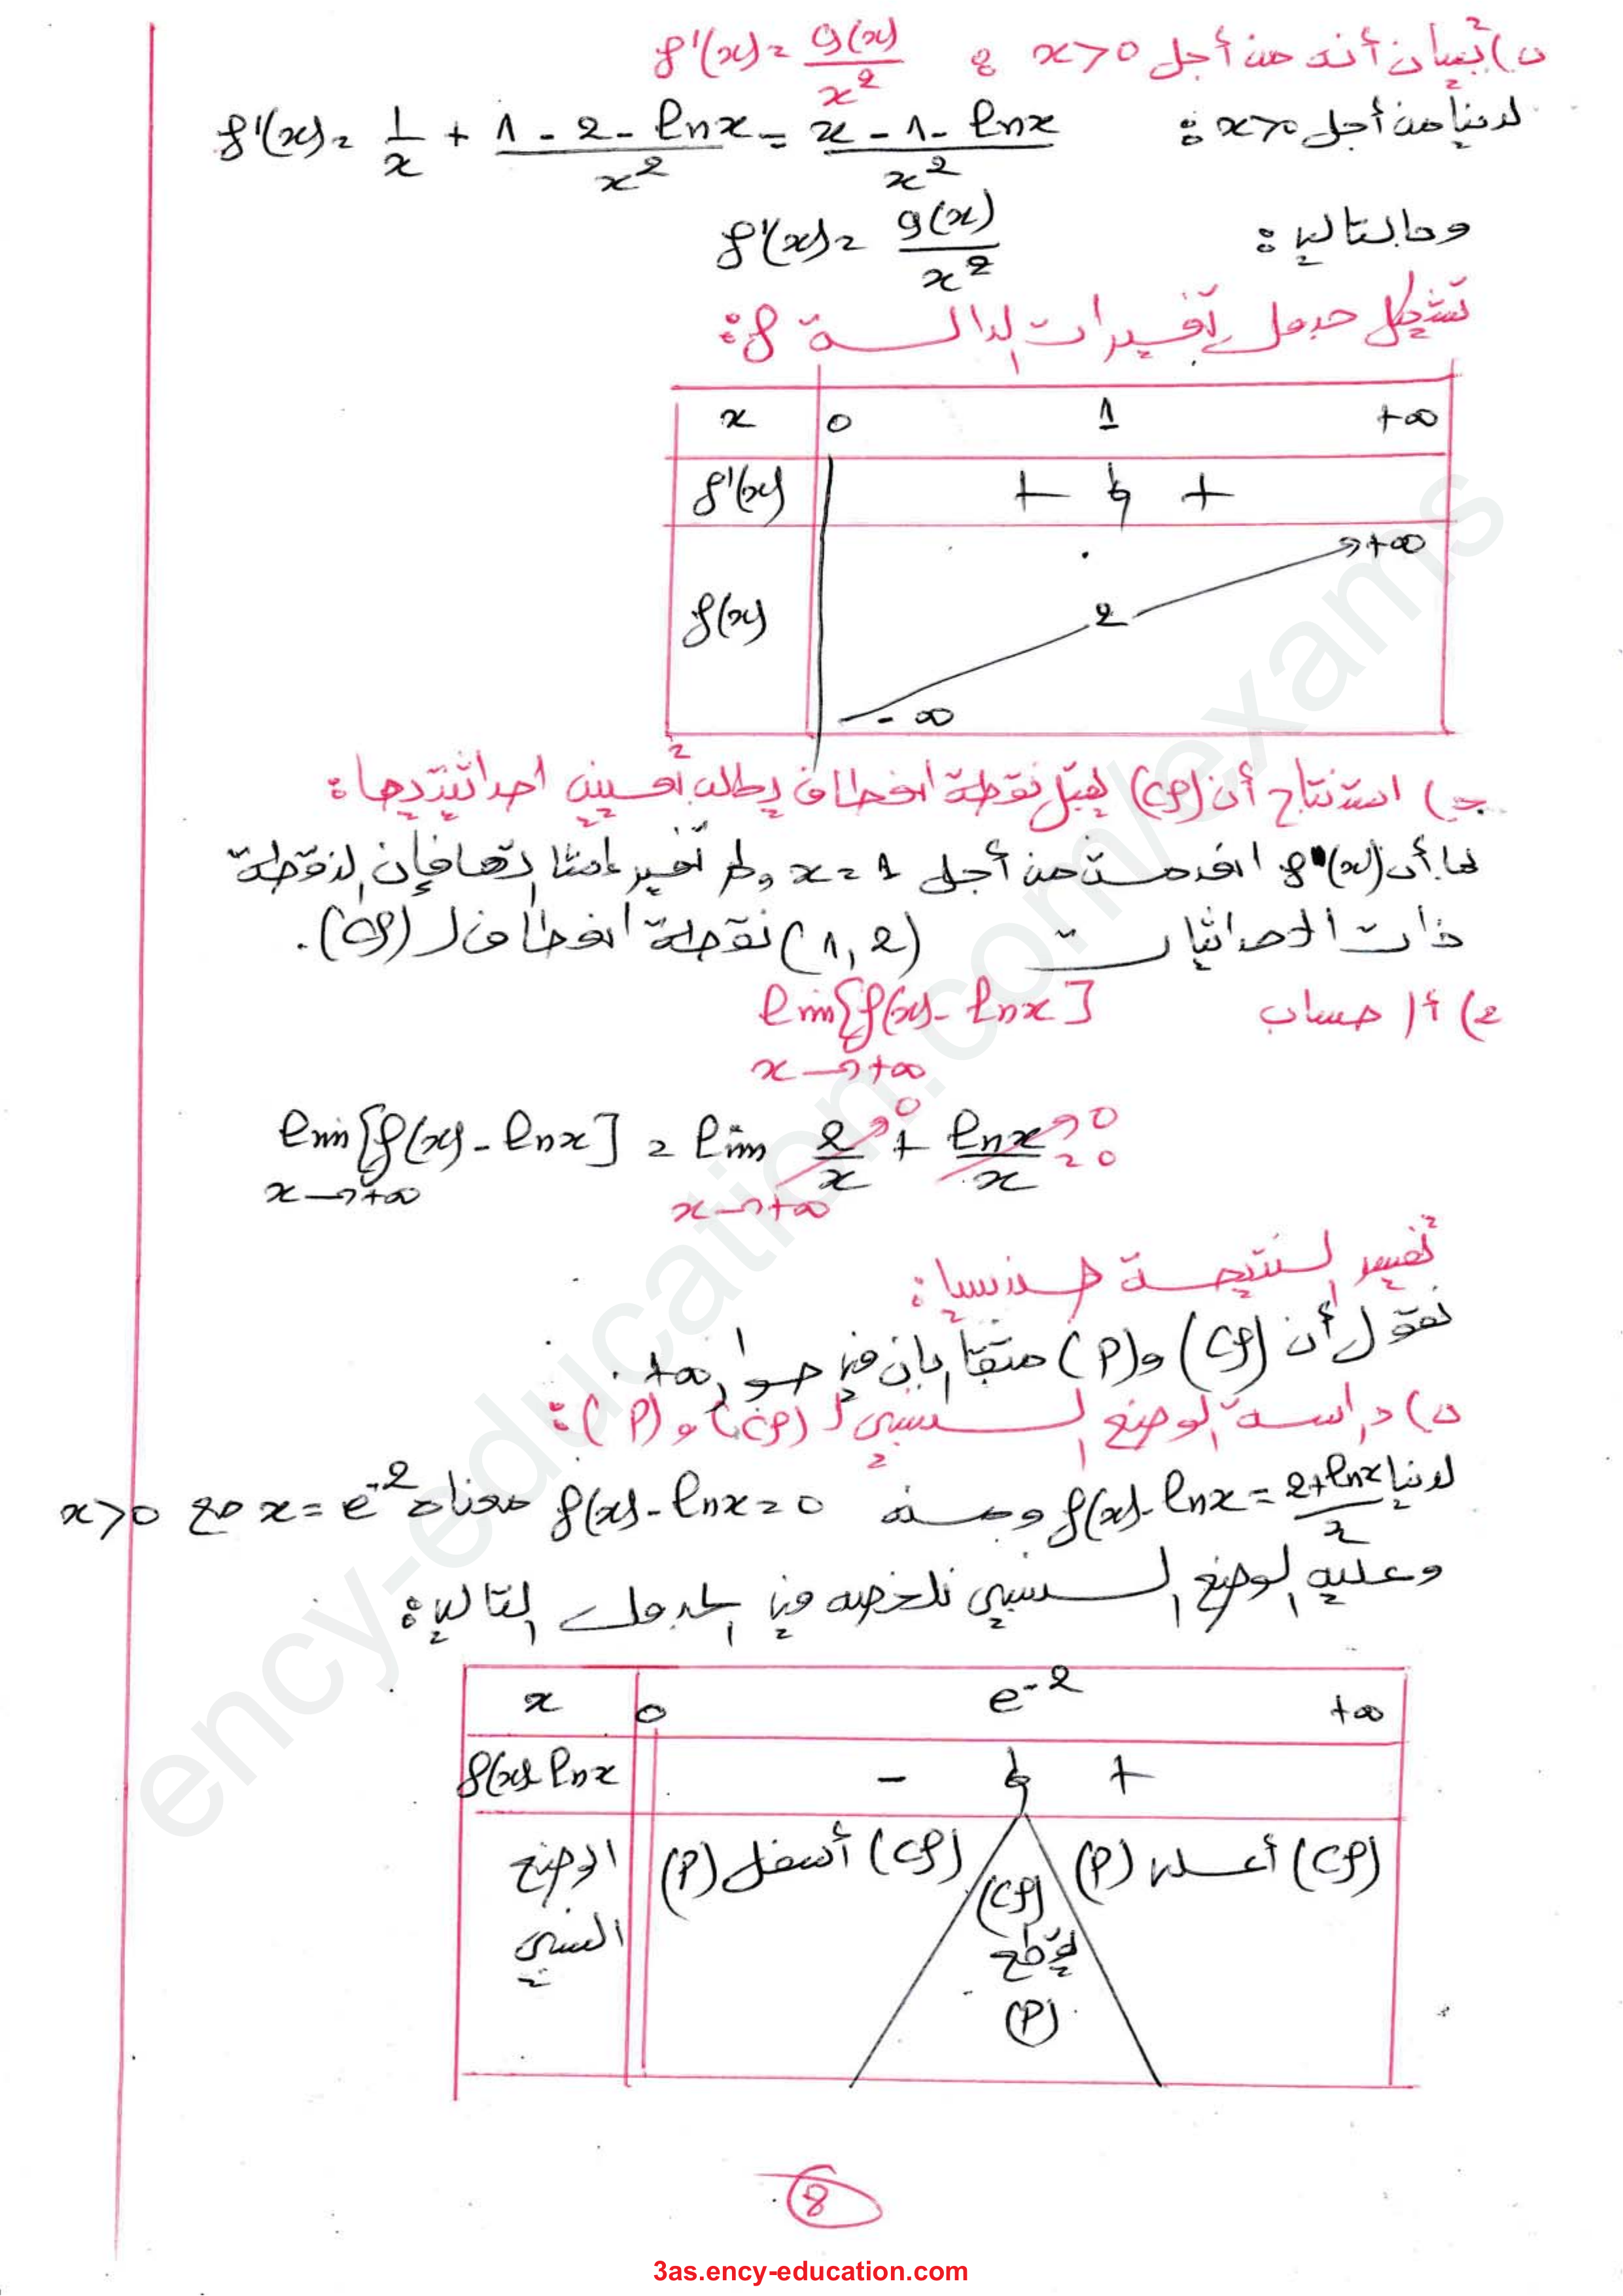 ب) تبيان أنه من أجل x>0 ؛ f'(x) = g(x)/x²
لدينا من أجل x>0 : f'(x) = 1/x + (1 - 2 - lnx)/x² = (x - 1 - lnx)/x²
وبالتالي : f'(x) = g(x)/x²
تشكيل جدول تغيرات الدالة f :
x 0 1 +∞
f'(x) + 0 +
f(x) -∞ 2 +∞
ج) استنتاج أن (Cf) يقبل نقطة انعطاف يطلب تعيين احداثيتيها :
بما أن f'(x) انعدمت من أجل x = 1 ولم تغير إشارتها فإن النقطة
ذات الاحداثيات (1, 2) نقطة انعطاف لـ (Cf).
2) أ/ حساب lim[f(x) - lnx]
x→+∞
lim[f(x) - lnx] = lim 2/x →0 + lnx/x →0 = 0
x→+∞ x→+∞
تفسير النتيجة هندسيا :
نقول أن (Cf) و (P) متقاربان في جوار +∞ .
ب) دراسة الوضع النسبي لـ (Cf) و (P) :
لدينا f(x) - lnx = (2+lnx)/x ومنه f(x) - lnx = 0 معناه x = e⁻² مع x>0
وعليه الوضع النسبي نلخصه في الجدول التالي :
x 0 e⁻² +∞
f(x)-lnx - 0 +
الوضع النسبي (Cf) أسفل (P) (Cf) يقطع (P) (Cf) أعلى (P)
8
3as.ency-education.com
ency-education.com/exams